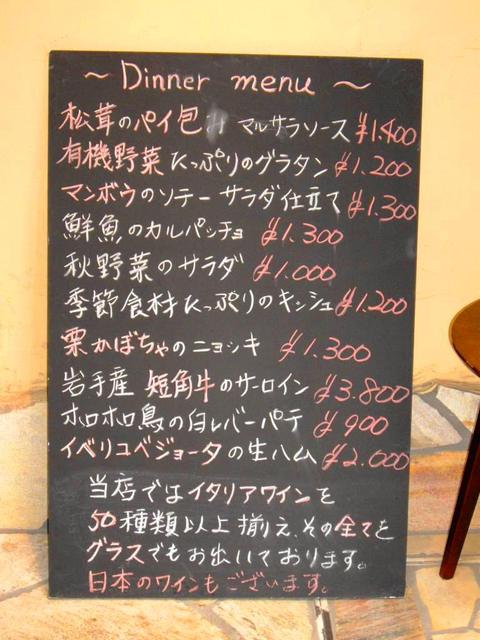 ～ Dinner menu ～
松茸のパイ包み マルサラソース ¥1.400
有機野菜たっぷりのグラタン ¥1.200
マンボウのソテー サラダ仕立て ¥1.300
鮮魚のカルパッチョ ¥1.300
秋野菜のサラダ ¥1.000
季節食材たっぷりのキッシュ ¥1.200
栗かぼちゃのニョッキ ¥1.300
岩手産 短角牛のサーロイン ¥3.800
ホロホロ鳥の白レバーパテ ¥900
イベリコベジョータの生ハム ¥2.000
当店ではイタリアワインを
50種類以上揃え、その全てを
グラスでもお出いております。
日本のワインもございます。